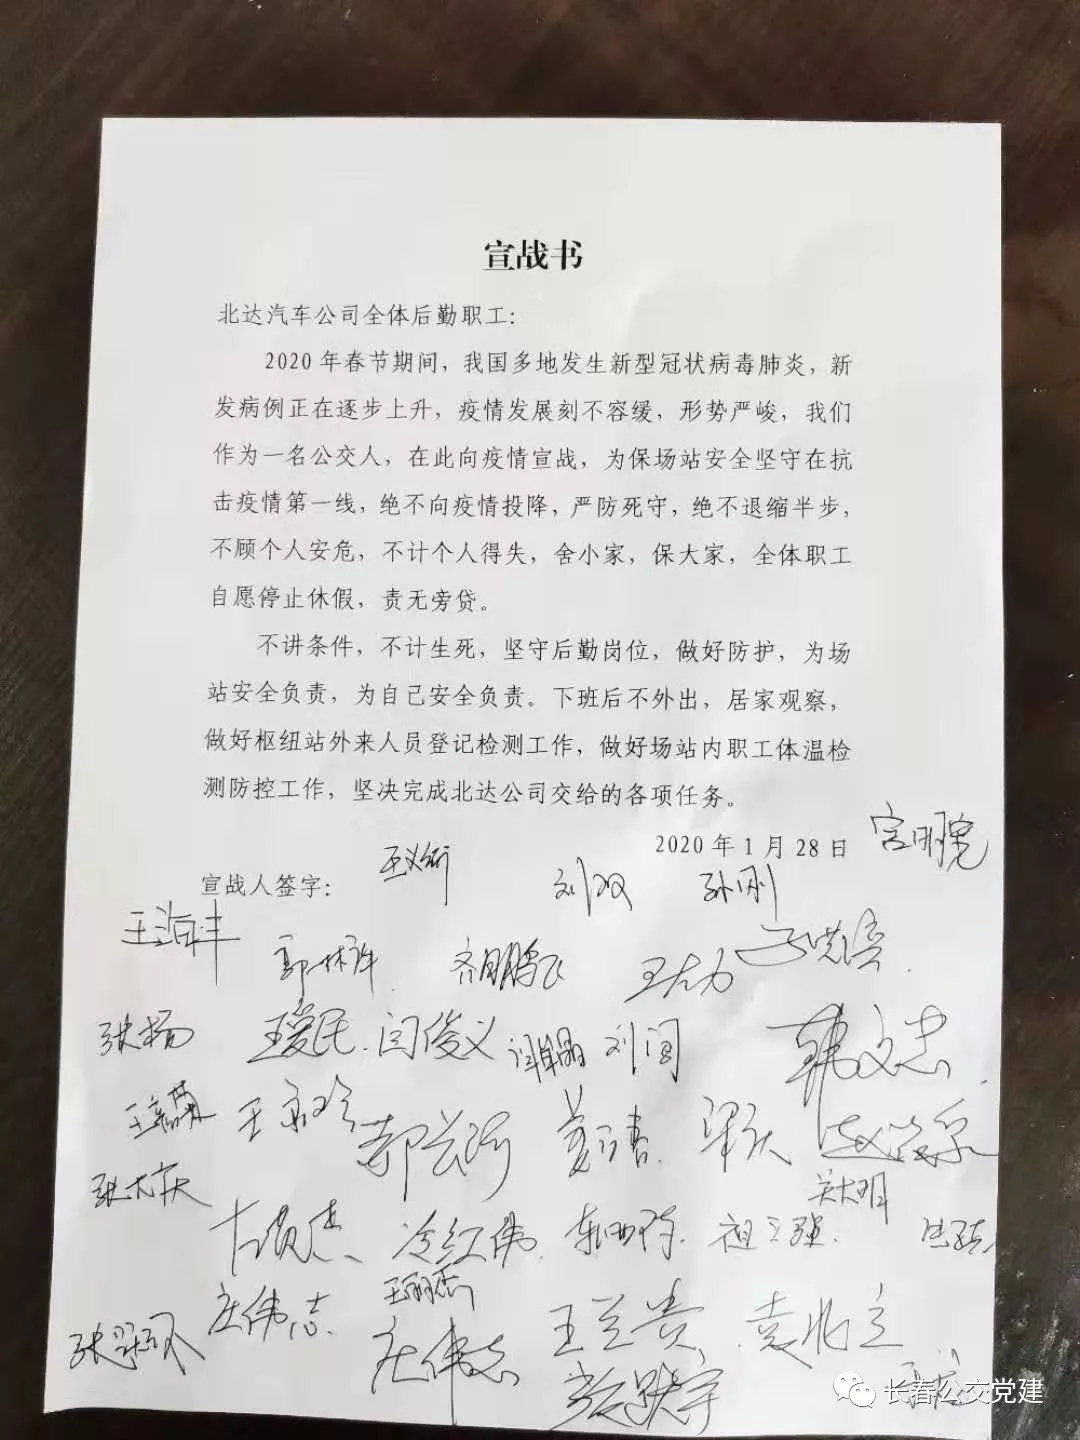 宣战书
北达汽车公司全体后勤职工:
2020年春节期间，我国多地发生新型冠状病毒肺炎，新
发病例正在逐步上升，疫情发展刻不容缓，形势严峻，我们
作为一名公交人，在此向疫情宣战，为保场站安全坚守在抗
击疫情第一线，绝不向疫情投降，严防死守，绝不退缩半步，
不顾个人安危，不计个人得失，舍小家，保大家，全体职工
自愿停止休假，责无旁贷。
不讲条件，不计生死，坚守后勤岗位，做好防护，为场
站安全负责，为自己安全负责。下班后不外出，居家观察，
做好枢纽站外来人员登记检测工作，做好场站内职工体温检
测防控工作，坚决完成北达公司交给的各项任务。
2020年1月28日
宣战人签字:
刘双 孙刚
王海丰 郭林许 齐鹏飞 王大力
张杨 王爱民 闫俊义 刘闯 韩文志
张大庆
冷红伟 祖立强
庄伟志
庄伟志 王兰贵 袁兆立
长春公交党建